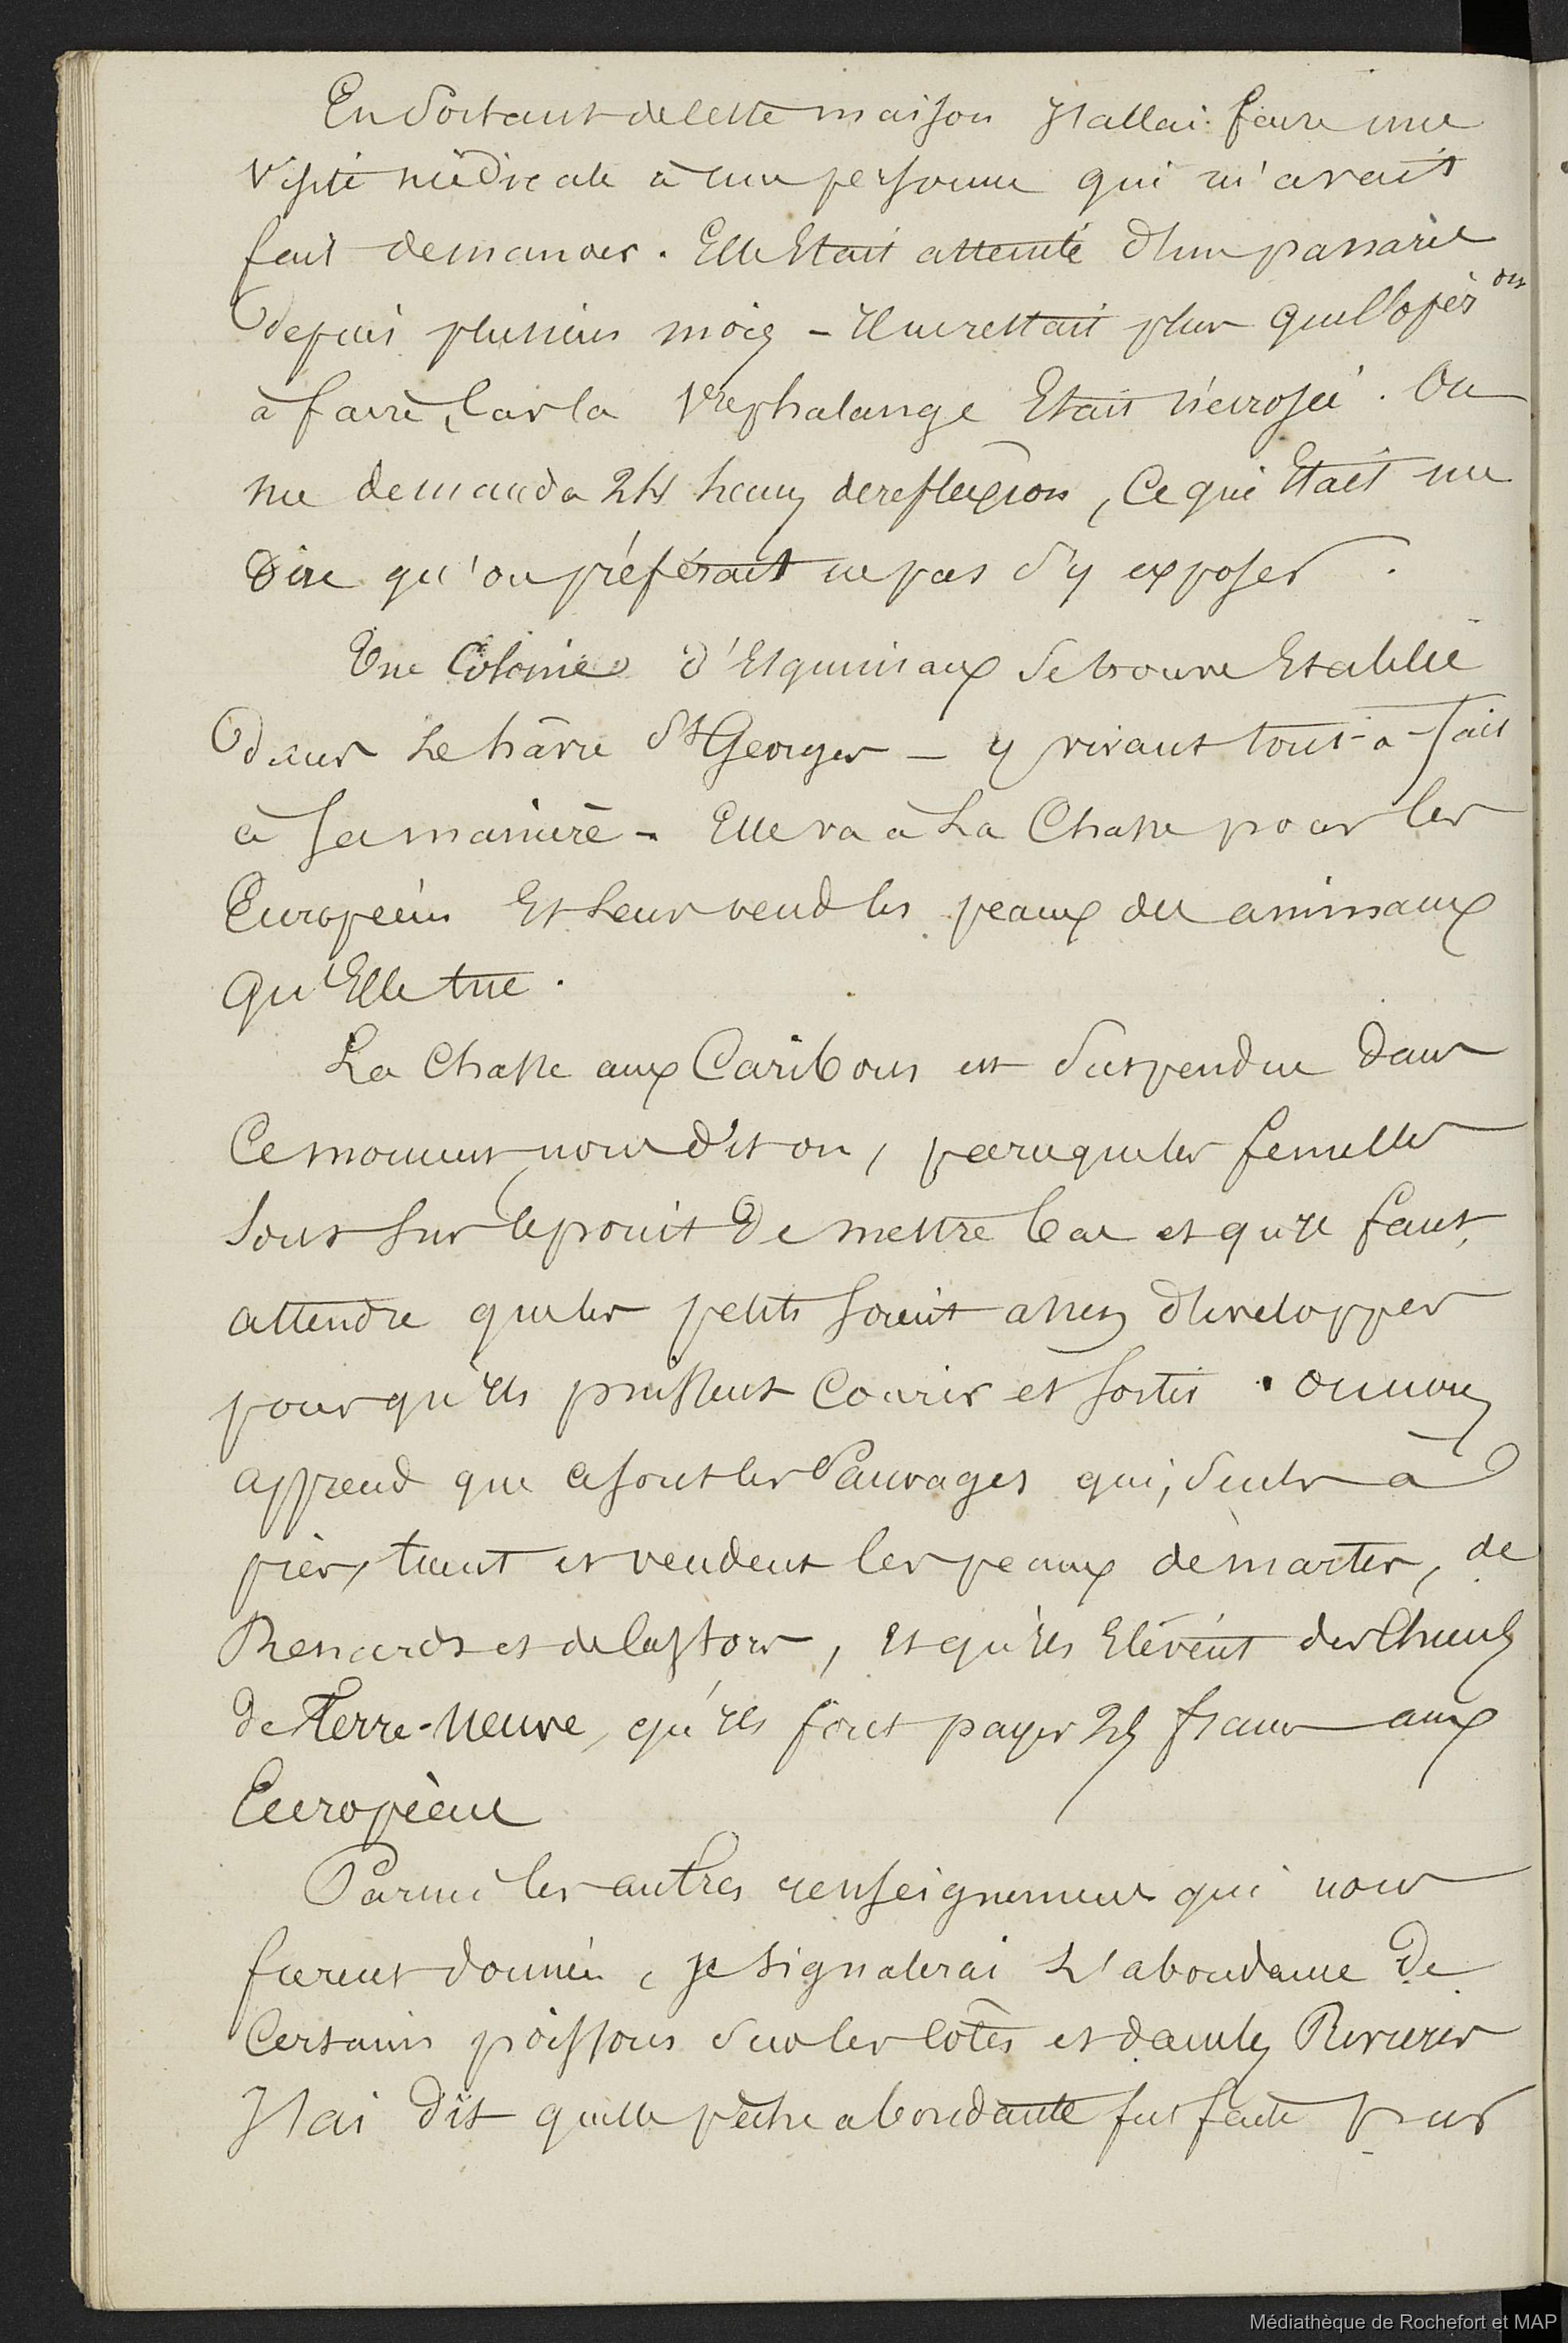 En sortant de cette maison J'allai faire une
visite médicale à une personne qui m'avait
fait demander. Elle Etait atteinte d'un panaris
depuis plusieurs mois – Il ne restait plus que l'opér on
à faire, car la 1re phalange Etait nécrosée. On
me demanda 24 heures de reflexion, ce qui Etait me
dire qu'on préférait ne pas s'y exposer.
Une Colonie d'Esquimaux se trouve Etablie
dans Le hâvre St Georges – y vivant tout-à-fait
à sa manière – Elle va à La Chasse pour les
Européens Et Leur vend les peaux des animaux
qu'Elle tue.
La Chasse aux Caribous est suspendue dans
ce moment, nous dit on, parceque les femelles
sont sur le point de mettre bas et qu'il faut
attendre que les petits soient assez développer
pour qu'ils puissent courir et sortir. on nous
apprend que ce sont les Sauvages qui, seuls à
, tuent et vendent les peaux de martes, de
Renards et de Castors, et qu'ils Elèvent des Chiens
de Terre-Neuve, qu'ils font payer 25 francs aux
Européens
Parmi les autres renseignements qui nous
furent donnés, je signalerai L'abondance de
certains poissons sur les côtes et dans les Rivieres
J'ai dit quelle pêche abondante fut faite par
Médiathèque de Rochefort et MAP